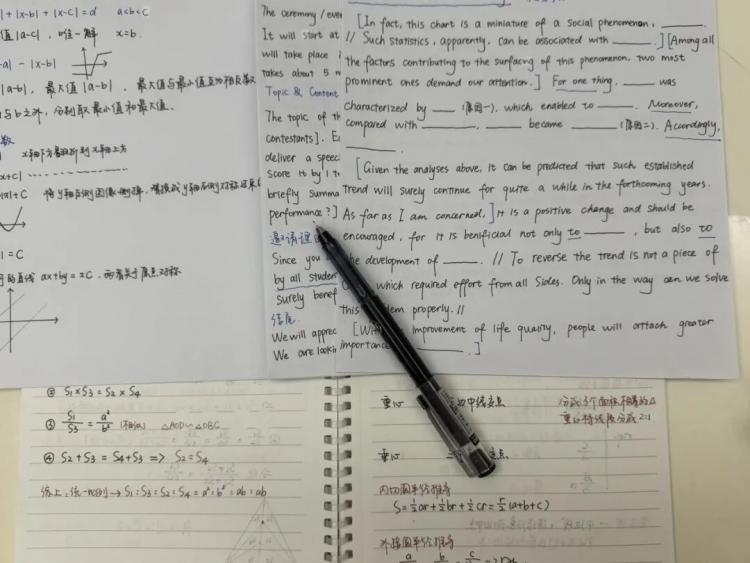 |+|x-b|+|x-c|=d a<b<c
值|a-c|, 唯一解 x=b.
-a|-|x-b|
|a-b|, 最大值|a-b|, 最大值与最小值互为相反数
与b之外, 分别取最小值和最大值.
数
x轴下方翻折到x轴上方
x+c|
|x|+C
|=C
的直线 ax+by=±C.
The ceremony / even
It will start at
will take place i
takes about 5 m
Topic & Content
The topic of th
contestants]. E
deliver a speec
Score it by 1 t
briefly summa
performance?]
邀请理
Since you
by all studen
surely benef
结尾
We will apprec
We are looki
[In fact, this chart is a miniature of a social phenomenon, ______.
// Such statistics, apparently, can be associated with ______.] [Among all
the factors contributing to the surfacing of this phenomenon, two most
prominent ones demand our attention.] For one thing, ______ was
characterized by ___ (原因一), which enabled to ______. Moreover,
compared with ______, ______ became ______ (原因二). Accordingly,
______.
[Given the analyses above, it can be predicted that such established
trend will surely continue for quite a while in the forthcoming years.
As far as I am concerned,] it is a positive change and should be
encouraged, for it is benificial not only to ______, but also to
the development of ______. // To reverse the trend is not a piece of
which required effort from all sides. Only in the way can we solve
this problem properly. //
[With improvement of life quality, people will attach greater
importance ______.]
② S₁×S₃=S₂×S₄
③ S₁/S₃=a²/b² (相似) △AOD∽△OBC
④ S₂+S₃=S₄+S₃ => S₂=S₄
综上, 统一比例→S₁:S₃:S₂:S₄=a²:b²:ab:ab
重心 中线交点 分成3个面积相等的△
重心将线段分成2:1
交点
内切圆半径推导
S=½ar+½br+½cr=r/2(a+b+c)
外接圆半径推导